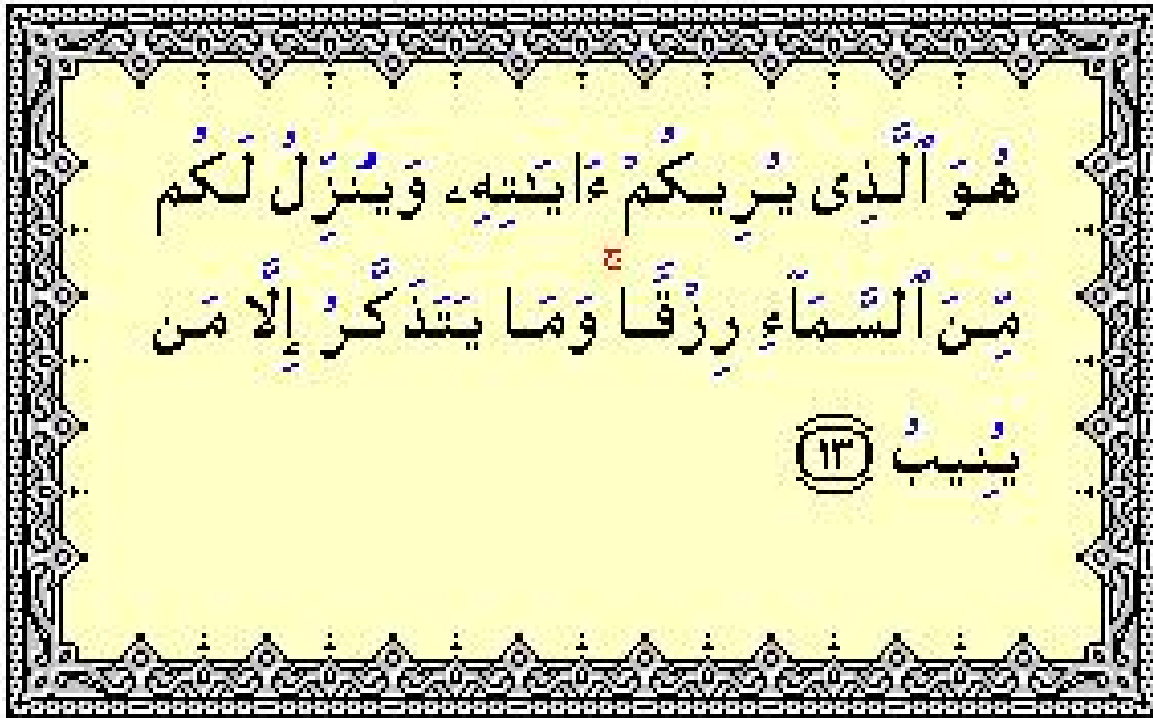 هُوَ ٱلَّذِى يُرِيكُمْ ءَايَـٰتِهِۦ وَيُنَزِّلُ لَكُم
مِّنَ ٱلسَّمَآءِ رِزْقًا ۚ وَمَا يَتَذَكَّرُ إِلَّا مَن
يُنِيبُ ١٣